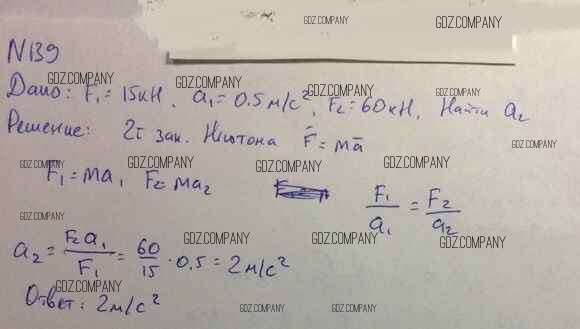 GDZ.COMPANY GDZ.COMPANY
N139
GDZ.COMPANY GDZ.COMPANY GDZ.COMPANY GDZ.COMPANY
Дано: F₁ = 15кН, a₁ = 0.5 м/с², F₂ = 60кН, Найти a₂
Решение: 2й зак. Ньютона F̄ = mā
GDZ.COMPANY GDZ.COMPANY GDZ.COMPANY
F₁ = ma₁ F₂ = ma₂
GDZ.COMPANY GDZ.COMPANY GDZ.COMPANY GDZ.COMPANY
F₁/a₁ = F₂/a₂
GDZ.COMPANY GDZ.COMPANY GDZ.COMPANY GDZ.COMPANY
a₂ = F₂a₁/F₁ = 60/15 · 0.5 = 2 м/с²
GDZ.COMPANY
Ответ: 2 м/с²
GDZ.COMPANY GDZ.COMPANY